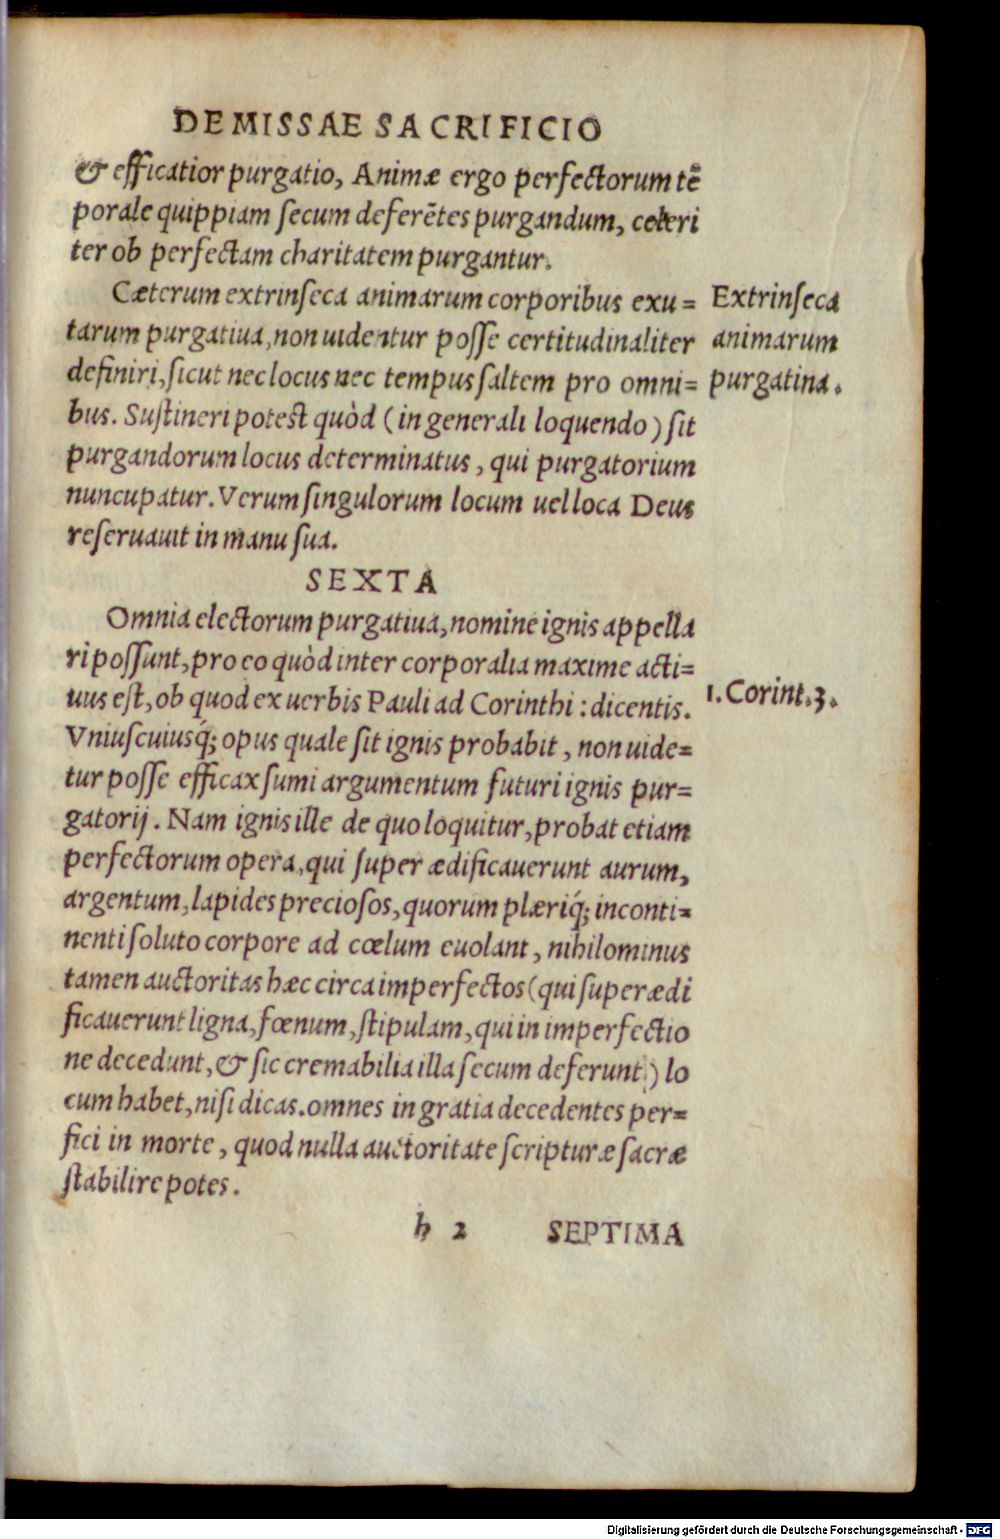 DE MISSAE SACRIFICIO
& efficatior purgatio, Animæ ergo perfectorum tẽ
porale quippiam secum deferẽtes purgandum, celeri
ter ob perfectam charitatem purgantur.
Cæterum extrinseca animarum corporibus exu=
tarum purgatiua, non uidentur posse certitudinaliter
definiri, sicut nec locus nec tempus saltem pro omni=
bus. Sustineri potest quòd (in generali loquendo) sit
purgandorum locus determinatus, qui purgatorium
nuncupatur. Verum singulorum locum uel loca Deus
reseruauit in manu sua.
Extrinseca
animarum
purgatina.
SEXTA
Omnia electorum purgatiua, nomine ignis appella
ri possunt, pro eo quòd inter corporalia maxime acti=
uus est, ob quod ex uerbis Pauli ad Corinthi: dicentis.
Vniuscuiusq́; opus quale sit ignis probabit, non uide=
tur posse efficax sumi argumentum futuri ignis pur=
gatorij. Nam ignis ille de quo loquitur, probat etiam
perfectorum opera, qui super ædificauerunt aurum,
argentum, lapides preciosos, quorum plæriq́; inconti=
nenti soluto corpore ad cœlum euolant, nihilominus
tamen auctoritas hæc circa imperfectos (qui superædi
ficauerunt ligna, fœnum, stipulam, qui in imperfectio
ne decedunt, & sic cremabilia illa secum deferunt) lo
cum habet, nisi dicas. omnes in gratia decedentes per=
fici in morte, quod nulla auctoritate scripturæ sacræ
stabilire potes.
1. Corint. 3.
h 2 SEPTIMA
Digitalisierung gefördert durch die Deutsche Forschungsgemeinschaft - DFG